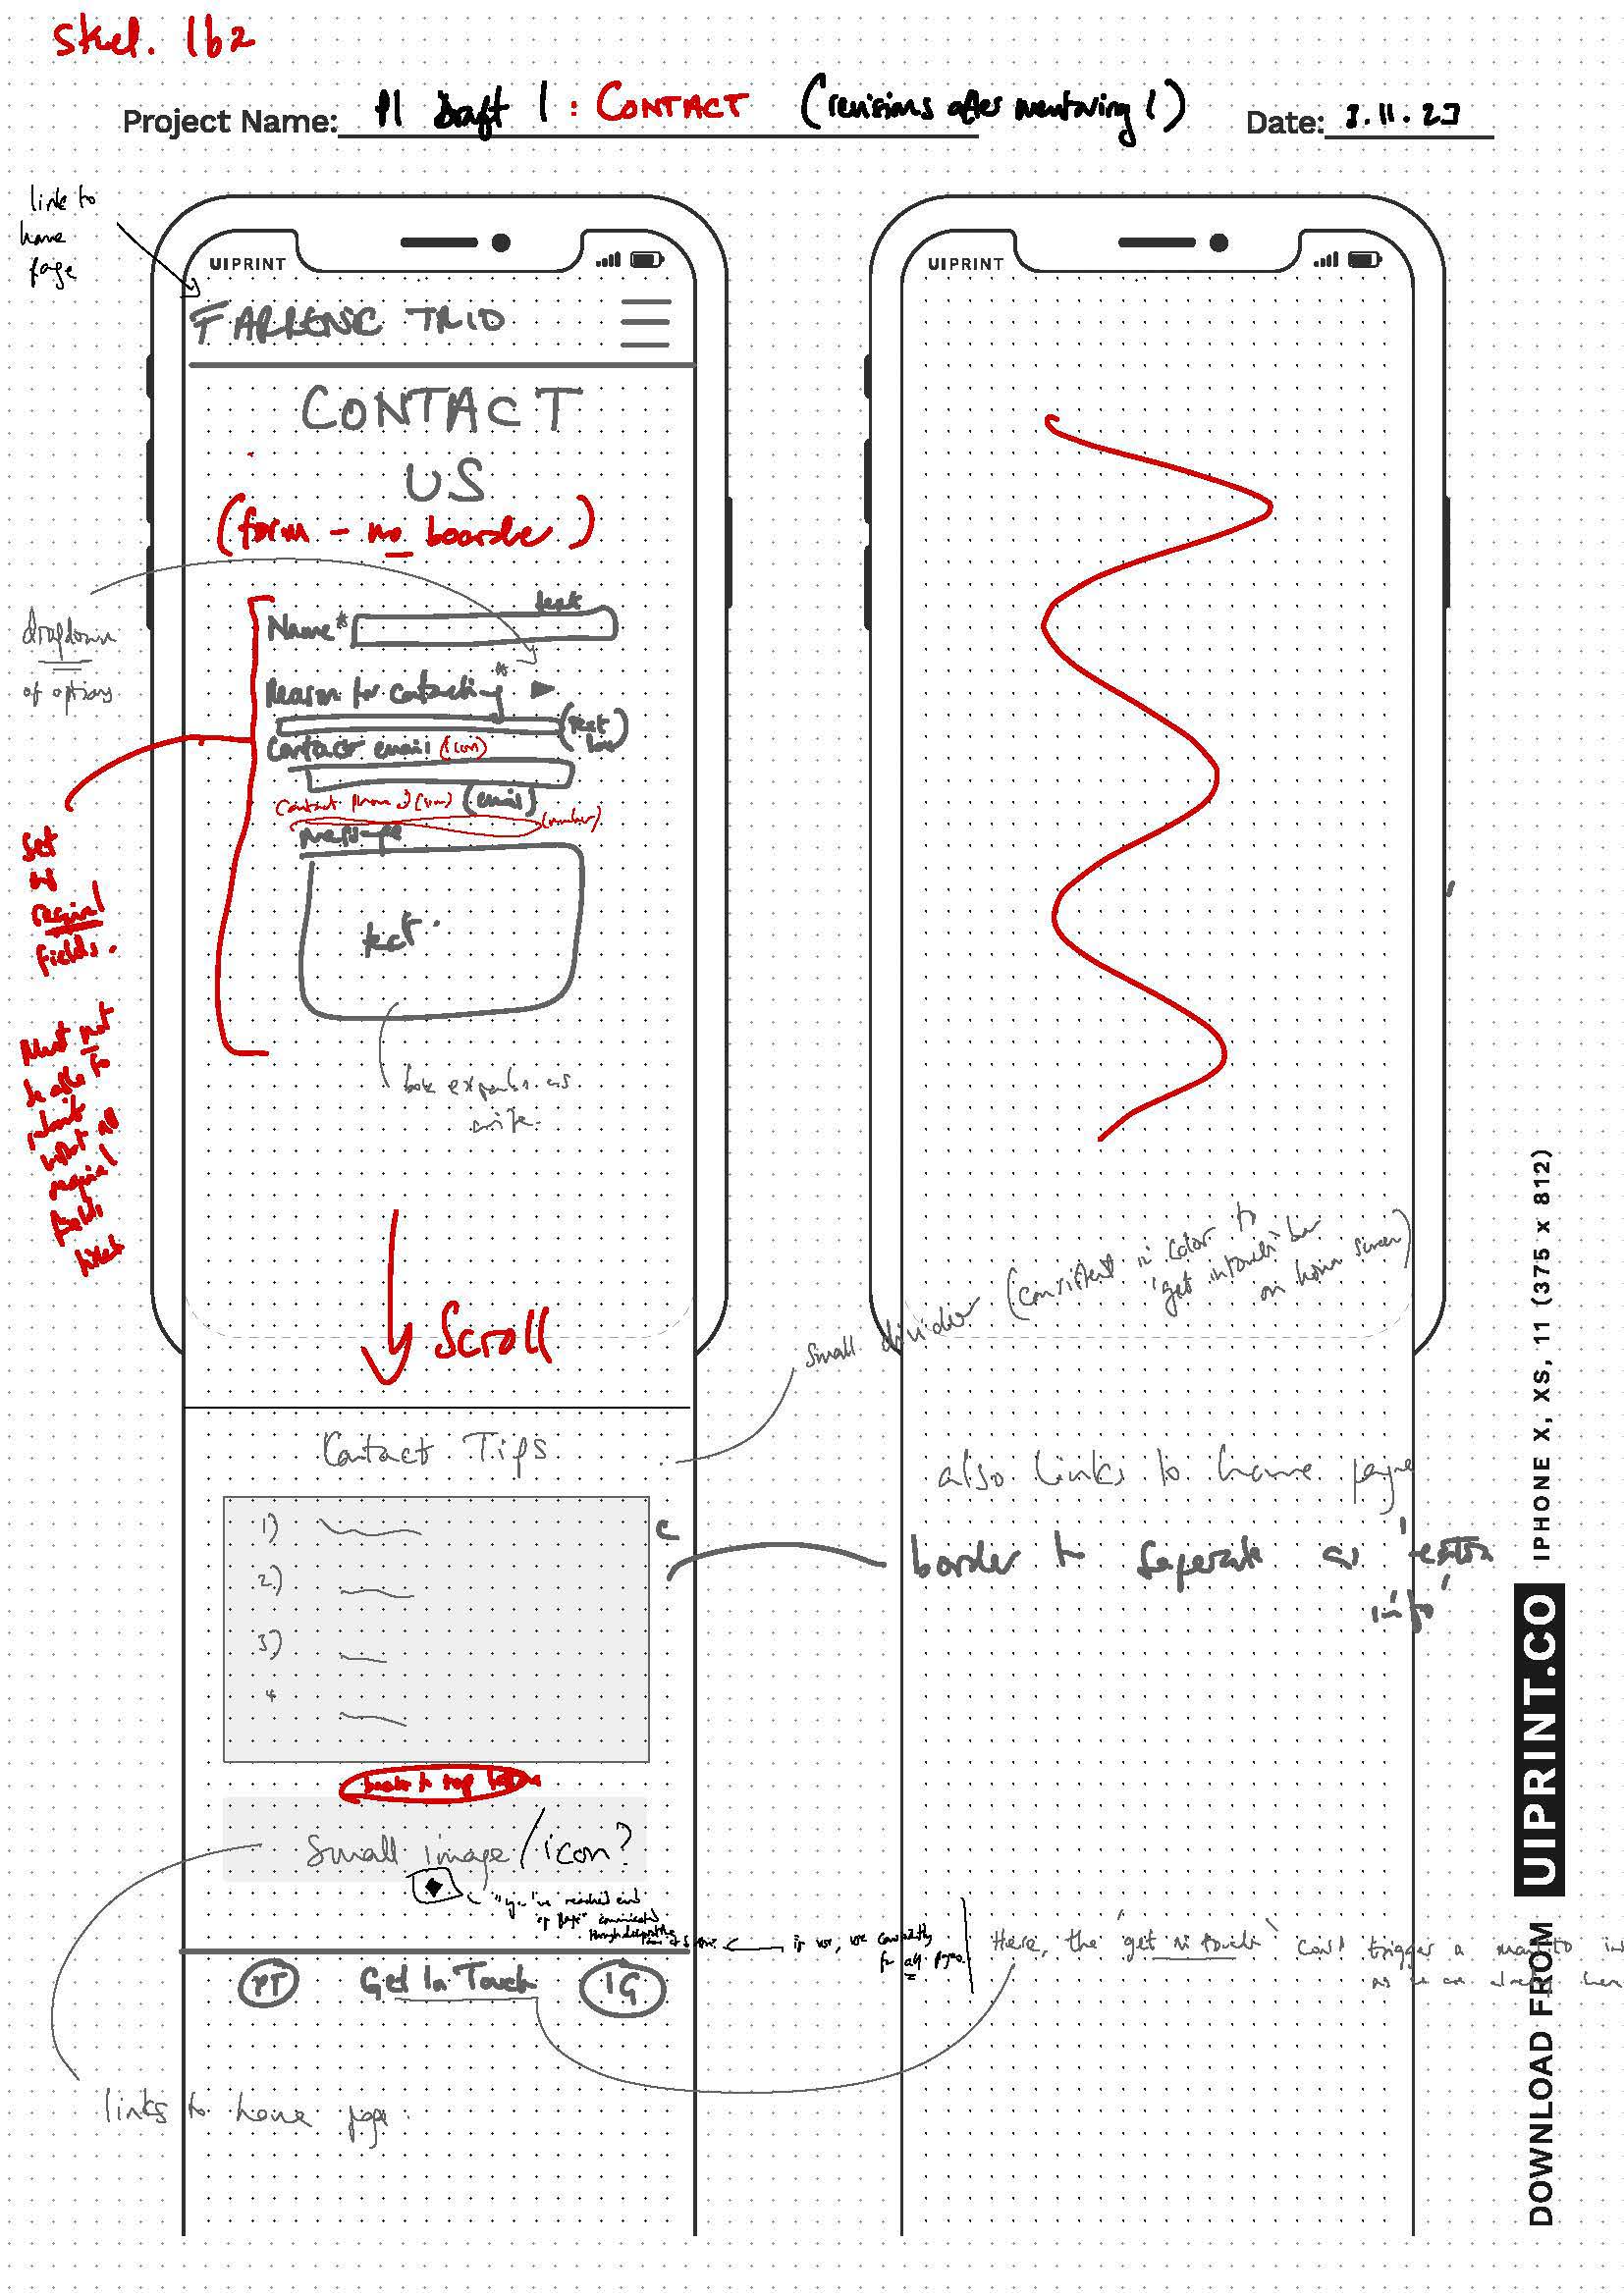 Skel. 1b2
Project Name: P1 Draft 1 : CONTACT (revisions after mentoring 1)
Date: 3.11.23
link to
home
page
UIPRINT
UIPRINT
FARRENC TRIO
CONTACT
US
(form - no boarde)
dropdown
of options
Name* text
Reason for contacting*
(text
box)
Contact email (icon)
(email)
Contact phone (icon)
(number)
message
text
box expands as
write.
Set
as
required
fields.
Must not
be able to
submit
without all
required
fields
filled
Scroll
small divider (consistent in color to
'get in touch' bar
on home screen)
Contact Tips
1)
2)
3)
4
also links to home page
border to seperate as 'extra
info'
back to top button
Small image/icon?
"you've reached end
of page" communicated
through
if use, use consistently
for all pages.
Here, the 'get in touch' can't trigger a
as
PT
Get In Touch
IG
links to home page.
IPHONE X, XS, 11 (375 x 812)
DOWNLOAD FROM UIPRINT.CO